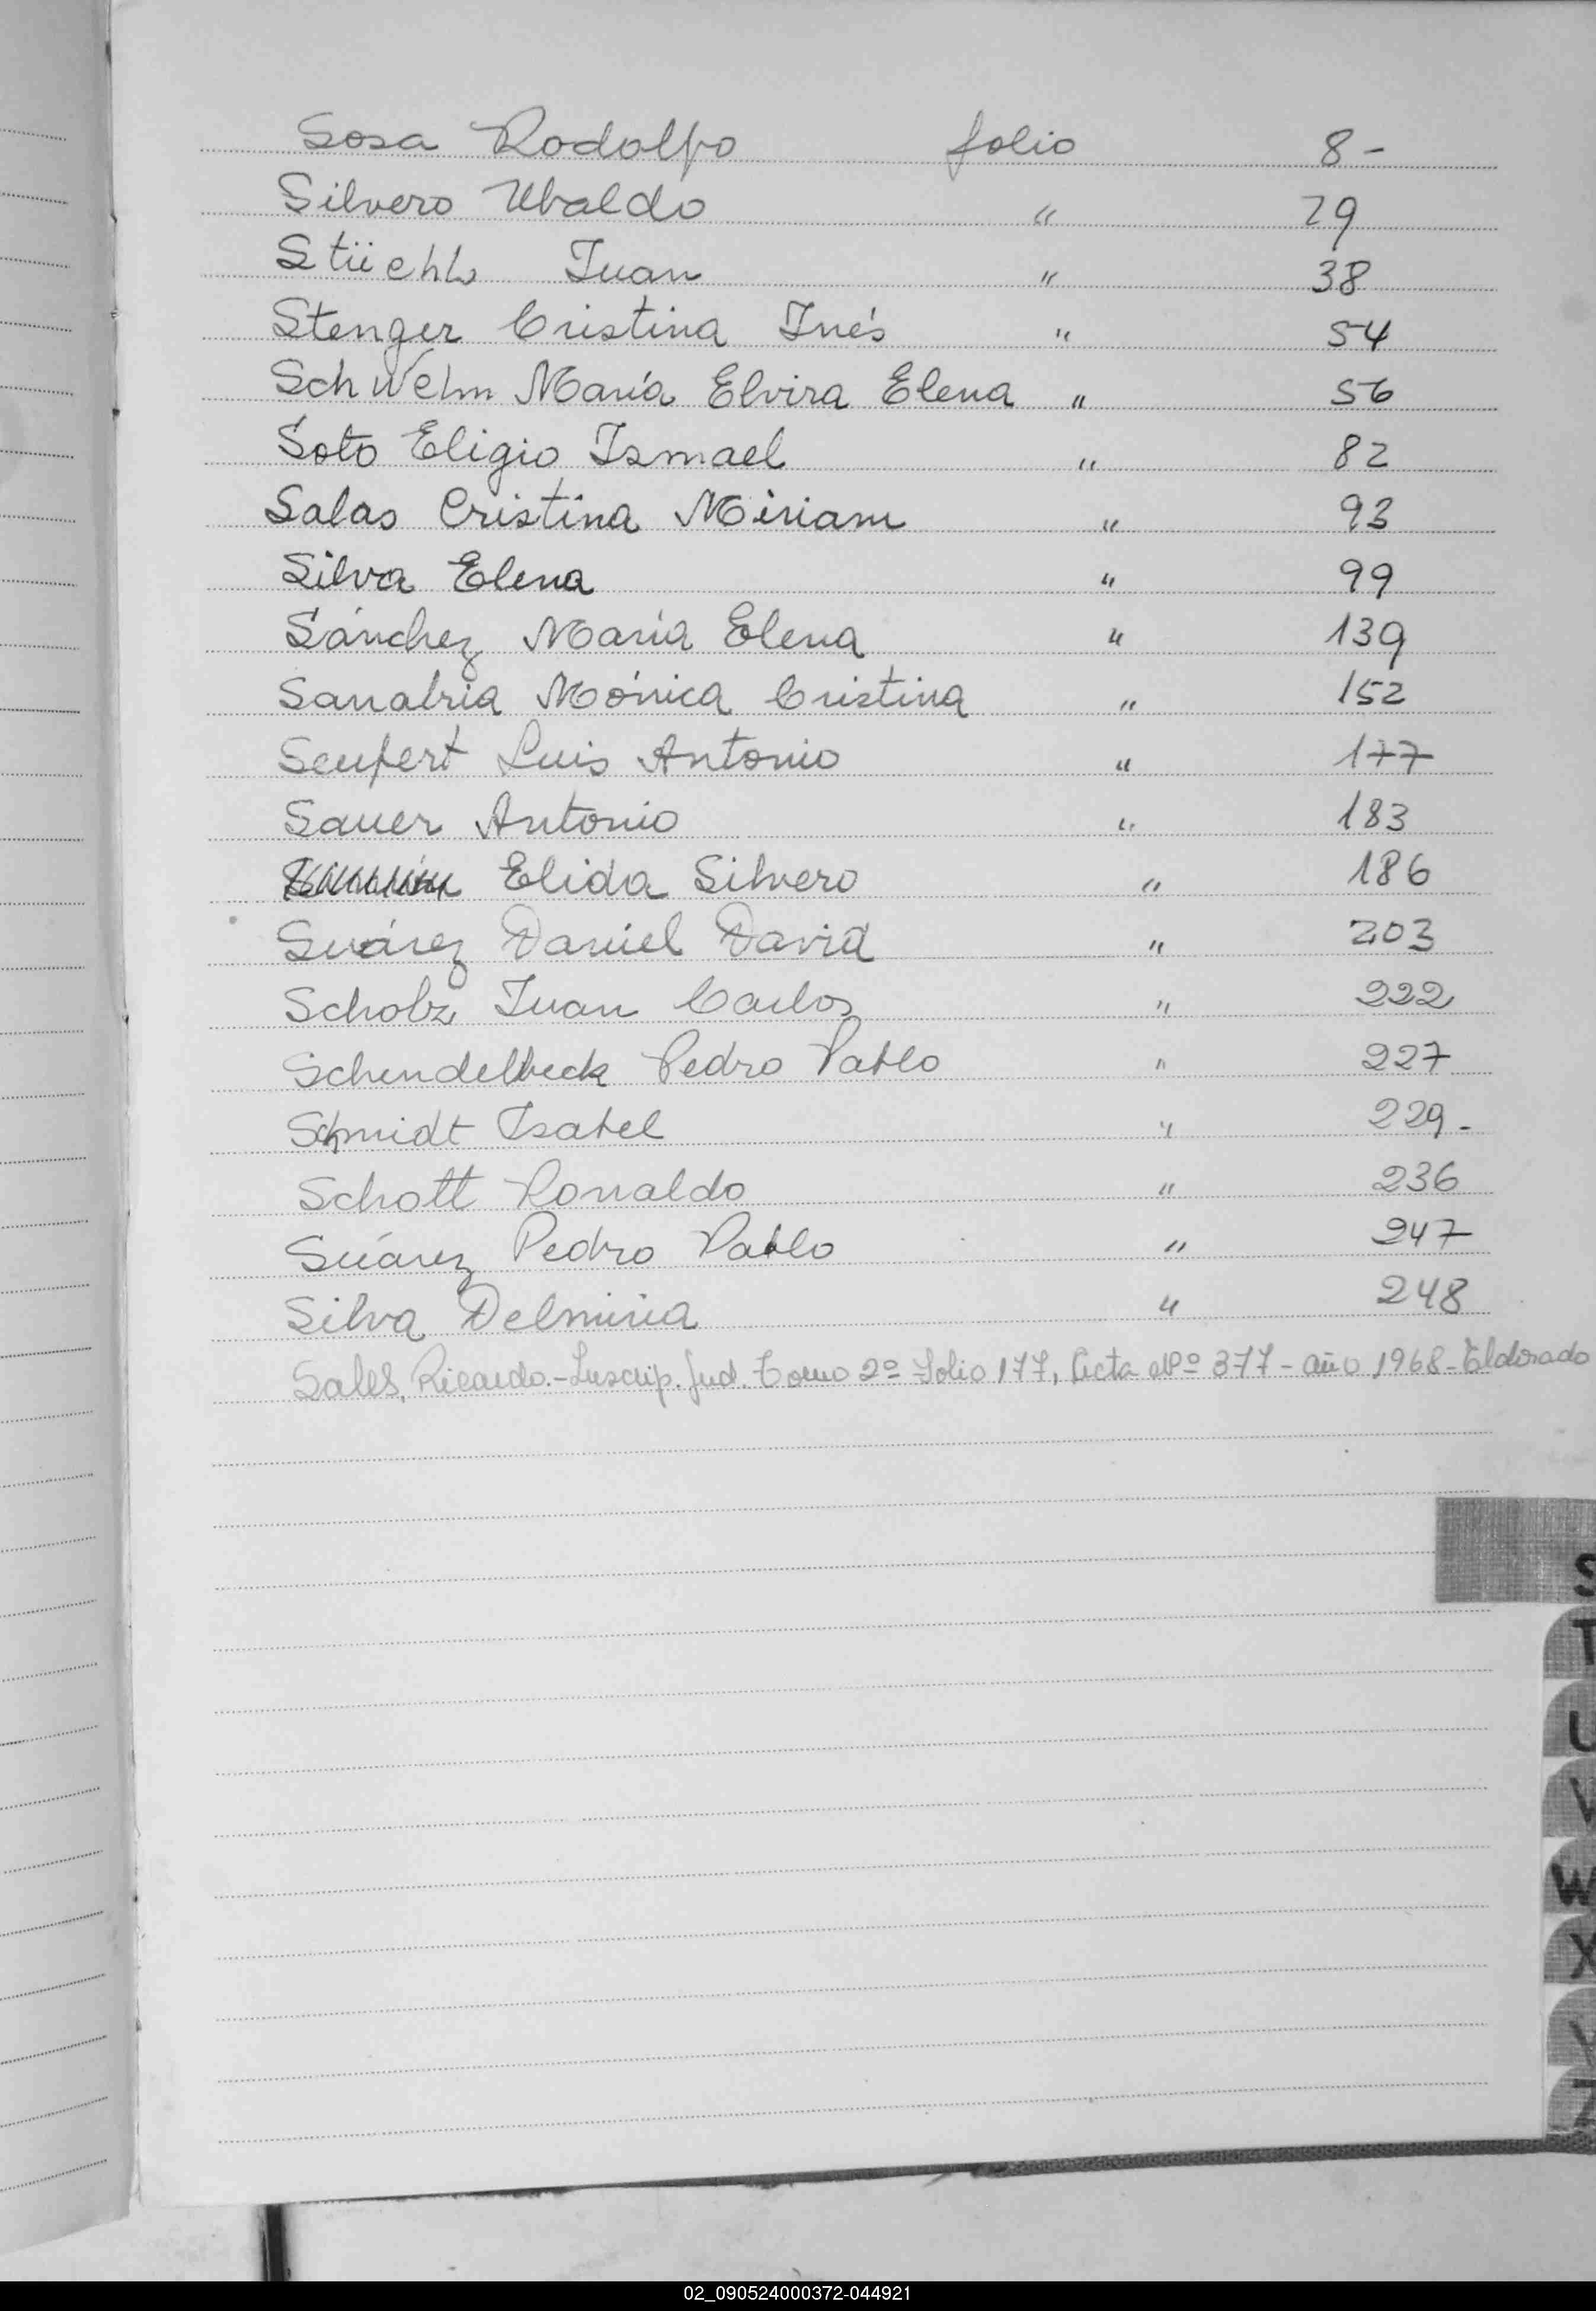 Sosa Rodolfo folio 8-
Silvero Ubaldo " 29
Juan " 38
Stenger Cristina Inés " 54
Schwelm María Elvira Elena " 56
Soto Eligio Ismael " 82
Salas Cristina Miriam " 93
Silva Elena " 99
Sánchez María Elena " 139
Sanabria Mónica Cristina " 152
Seufert Luis Antonio " 177
Sauer Antonio " 183
Elida Silvero " 186
Suárez Daniel David " 203
Scholz Juan Carlos " 222
Schendelbeck Pedro Pablo " 227
Schmidt Isabel " 229-
Schott Ronaldo " 236
Suárez Pedro Pablo " 247
Silva Delmiria " 248
Sales, Ricardo.-Inscrip. Jud. Tomo 2º Folio 177, Acta Nº 377-año 1968-Eldorado
S
T
U
V
W
X
Y
Z
02_090524000372-044921